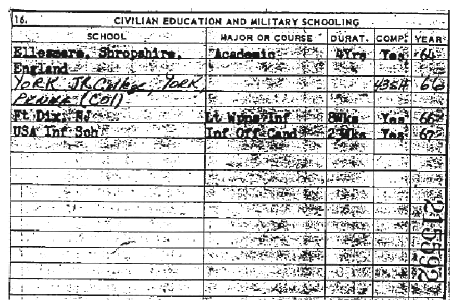 16. CIVILIAN EDUCATION AND MILITARY SCHOOLING
SCHOOL MAJOR OR COURSE DURAT. COMP. YEAR
Ellesmere, Shropshire, Academic 4Yrs Yes 64
England
YORK JR College, YORK, 43SH 66
PENNA (COI)
Ft Dix, NJ Lt Wpns Inf 8Wks Yes 66
USA Inf Sch Inf Off Cand Wks Yes 67